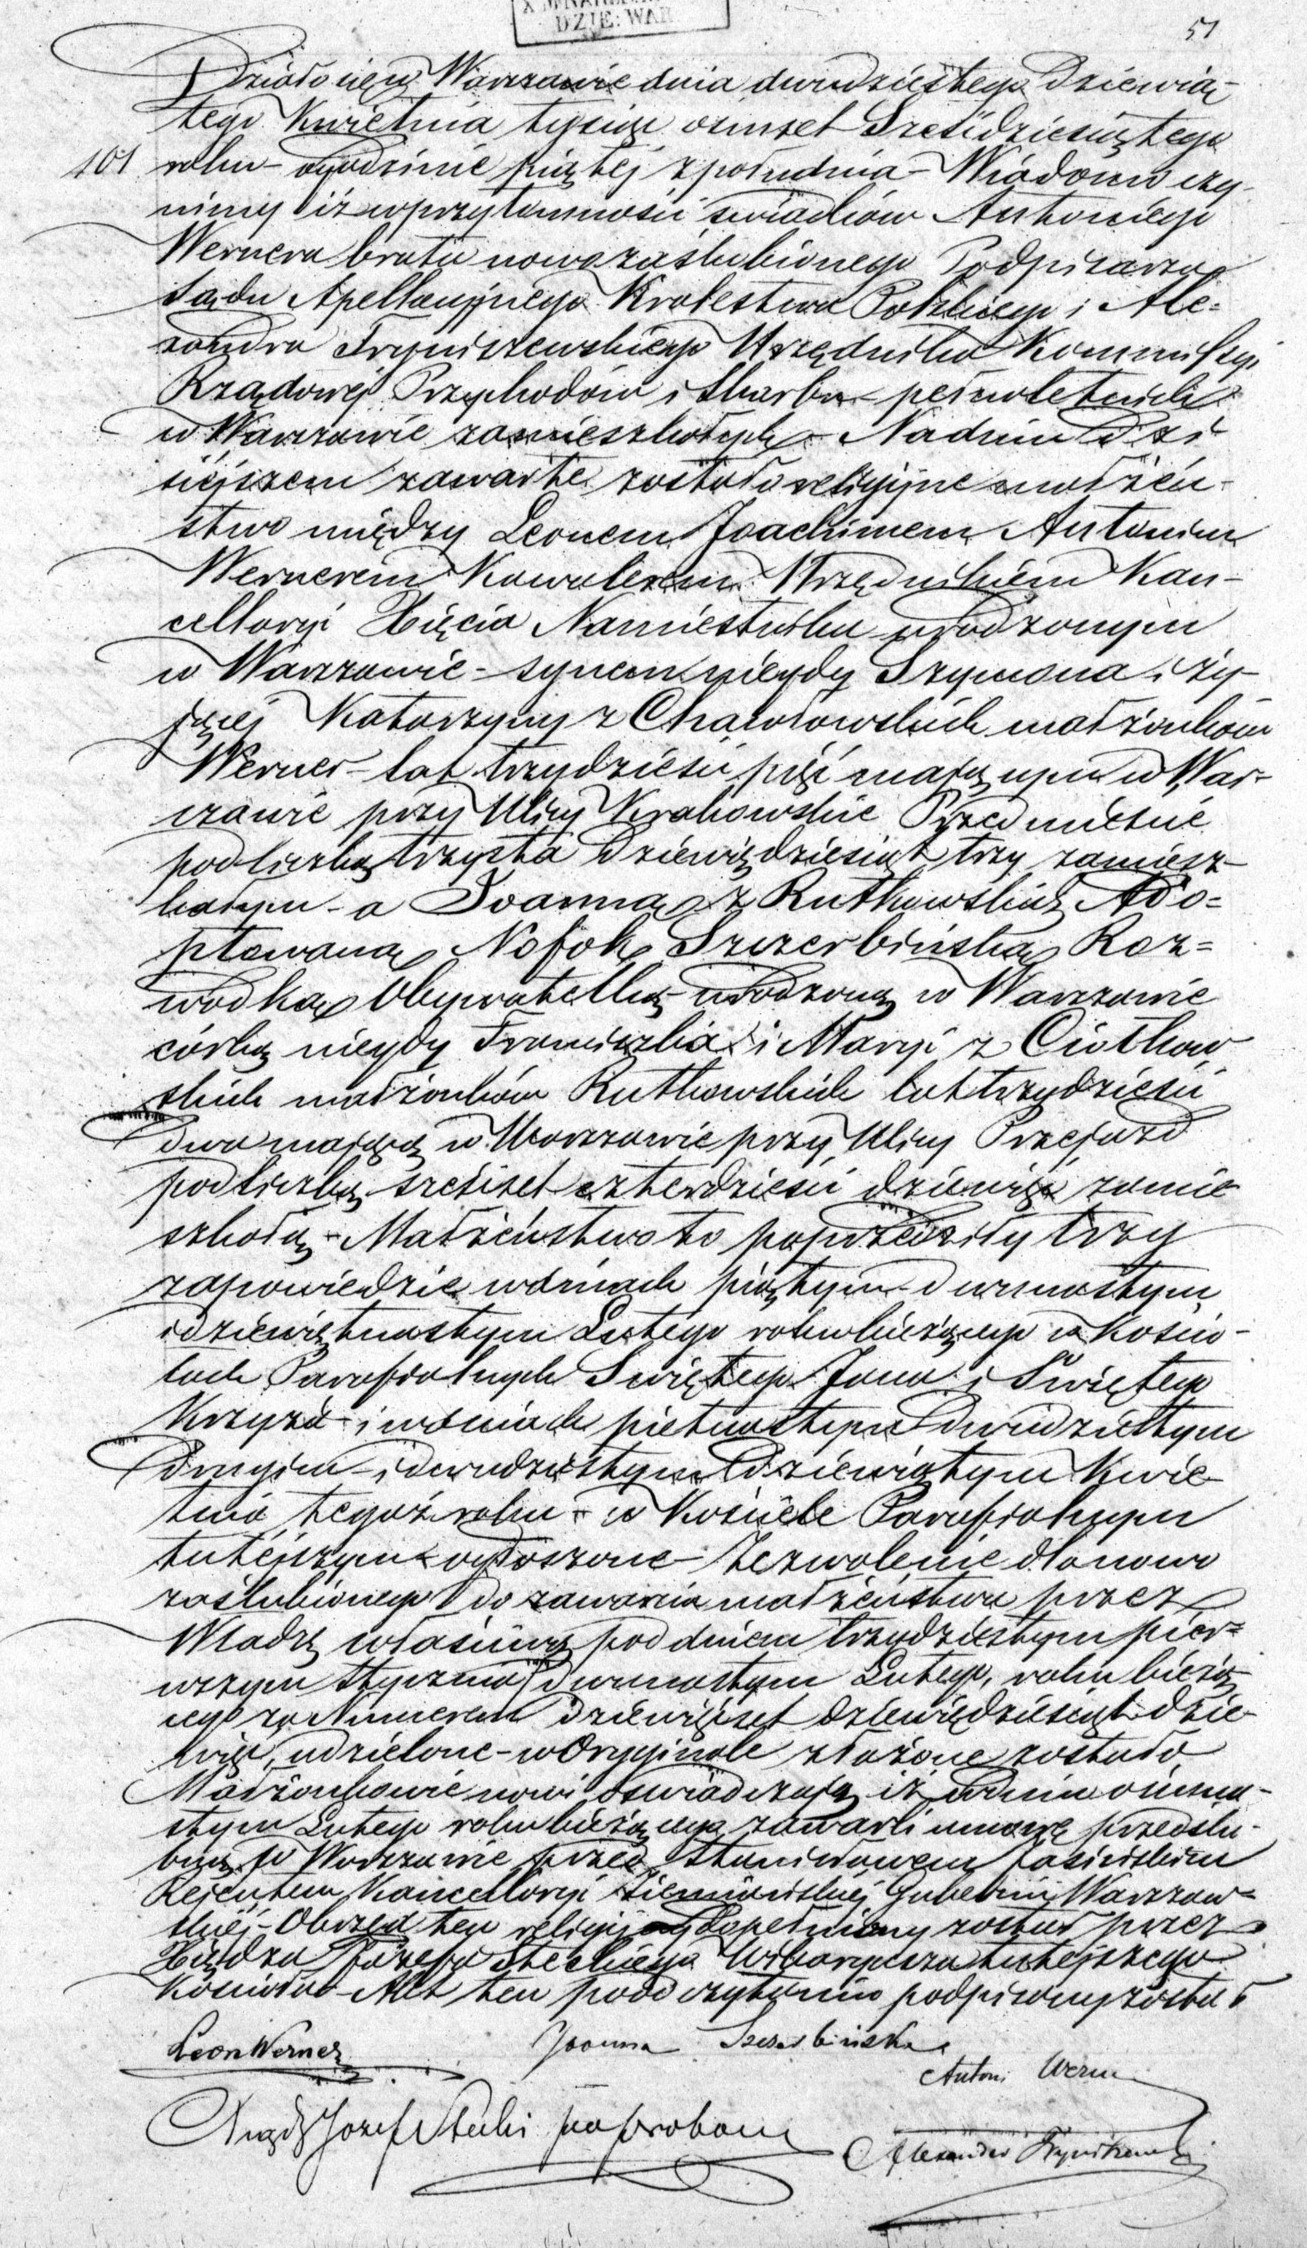 DZIE: WAR
51
Działo się w Warszawie dnia dwudziestego Dziewią-
tego Kwietnia tysiąc osmset Sześćdziesiątego
101 roku o godzinie piątej z południa – Wiadomo czy-
nimy iż w przytomności świadków Antoniego
Wernera brata nowozaślubionego Podpisarza
Sądu Apellacyjnego Krolestwa Polskiego i Ale-
xandra Fryniszewskiego Urzędnika Kommissyi
Rządowej Przychodów i Skarbu pełnoletnich
w Warszawie zamieszkałych – Na dniu dzi
siejszem zawarte zostało religijne małżeń-
stwo między Leonem Joachimem Antonim
Wernerem Kawalerem Urzędnikiem Kan-
cellaryi Xięcia Namiestnika urodzonym
w Warszawie – synem niegdy Szymona i ży-
jącej Katarzyny z Chawłowskich małżonków
Werner – lat trzydzieści pięć mającym w War-
szawie przy Ulicy Krakowskie Przedmieście
pod liczbą trzysta dziewiędziesiąt trzy zamiesz-
kałym – a Joanną z Rutkowskich Ado-
ptowaną Nofok Szczerbińską Roz-
wodką Obywatelką urodzoną w Warszawie
córką niegdy Franciszka i Maryi z Ciótkow
skich małżonków Rutkowskich lat trzydzieści
dwa mającą w Warszawie przy Ulicy Przejazd
pod liczbą sześćset czterdzieści dziewięć zamie
szkałą – Małżeństwo to poprzedziły trzy
zapowiedzie w dniach piątym dwunastym
i dziewiętnastym Lutego roku bieżącego w Kościo-
łach Parafialnych Świętego Jana i Świętego
Krzyża – i w dniach piętnastym dwudziestym
drugim – i dwudziestym dziewiątym Kwie-
tnia tegoż roku – w Kościele Parafialnym
tutejszym ogłoszone – Zezwolenie dla nowo
zaślubionego do zawarcia małżeństwa przez
Władzę właściwą pod dniem trzydziestym pier-
wszym Stycznia dwunastym Lutego, roku bieżą-
cego za Numerem dziewięćset dziewiędziesiąt dzie-
więć, udzielone – w Oryginale złożone zostało
Małżonkowie nowi oświadczają iż w dniu ośmna-
stym Lutego roku bieżącego zawarli umowę przedślu-
bną w Warszawie przed Stanisławem Jasińskim
Rejentem Kancellaryi Ziemiańskiej Gubernii Warszaw-
skiej – Obrzęd ten religijny dopełniony został przez
Xiędza Józefa Steckiego Wikaryusza tutejszego
Kościoła – Akt ten po odczytaniu podpisany został
Leon Werner Joanna Szczerbińska
Antoni Werner
Xiądz Józef Stecki
Alexander Fryniszewski